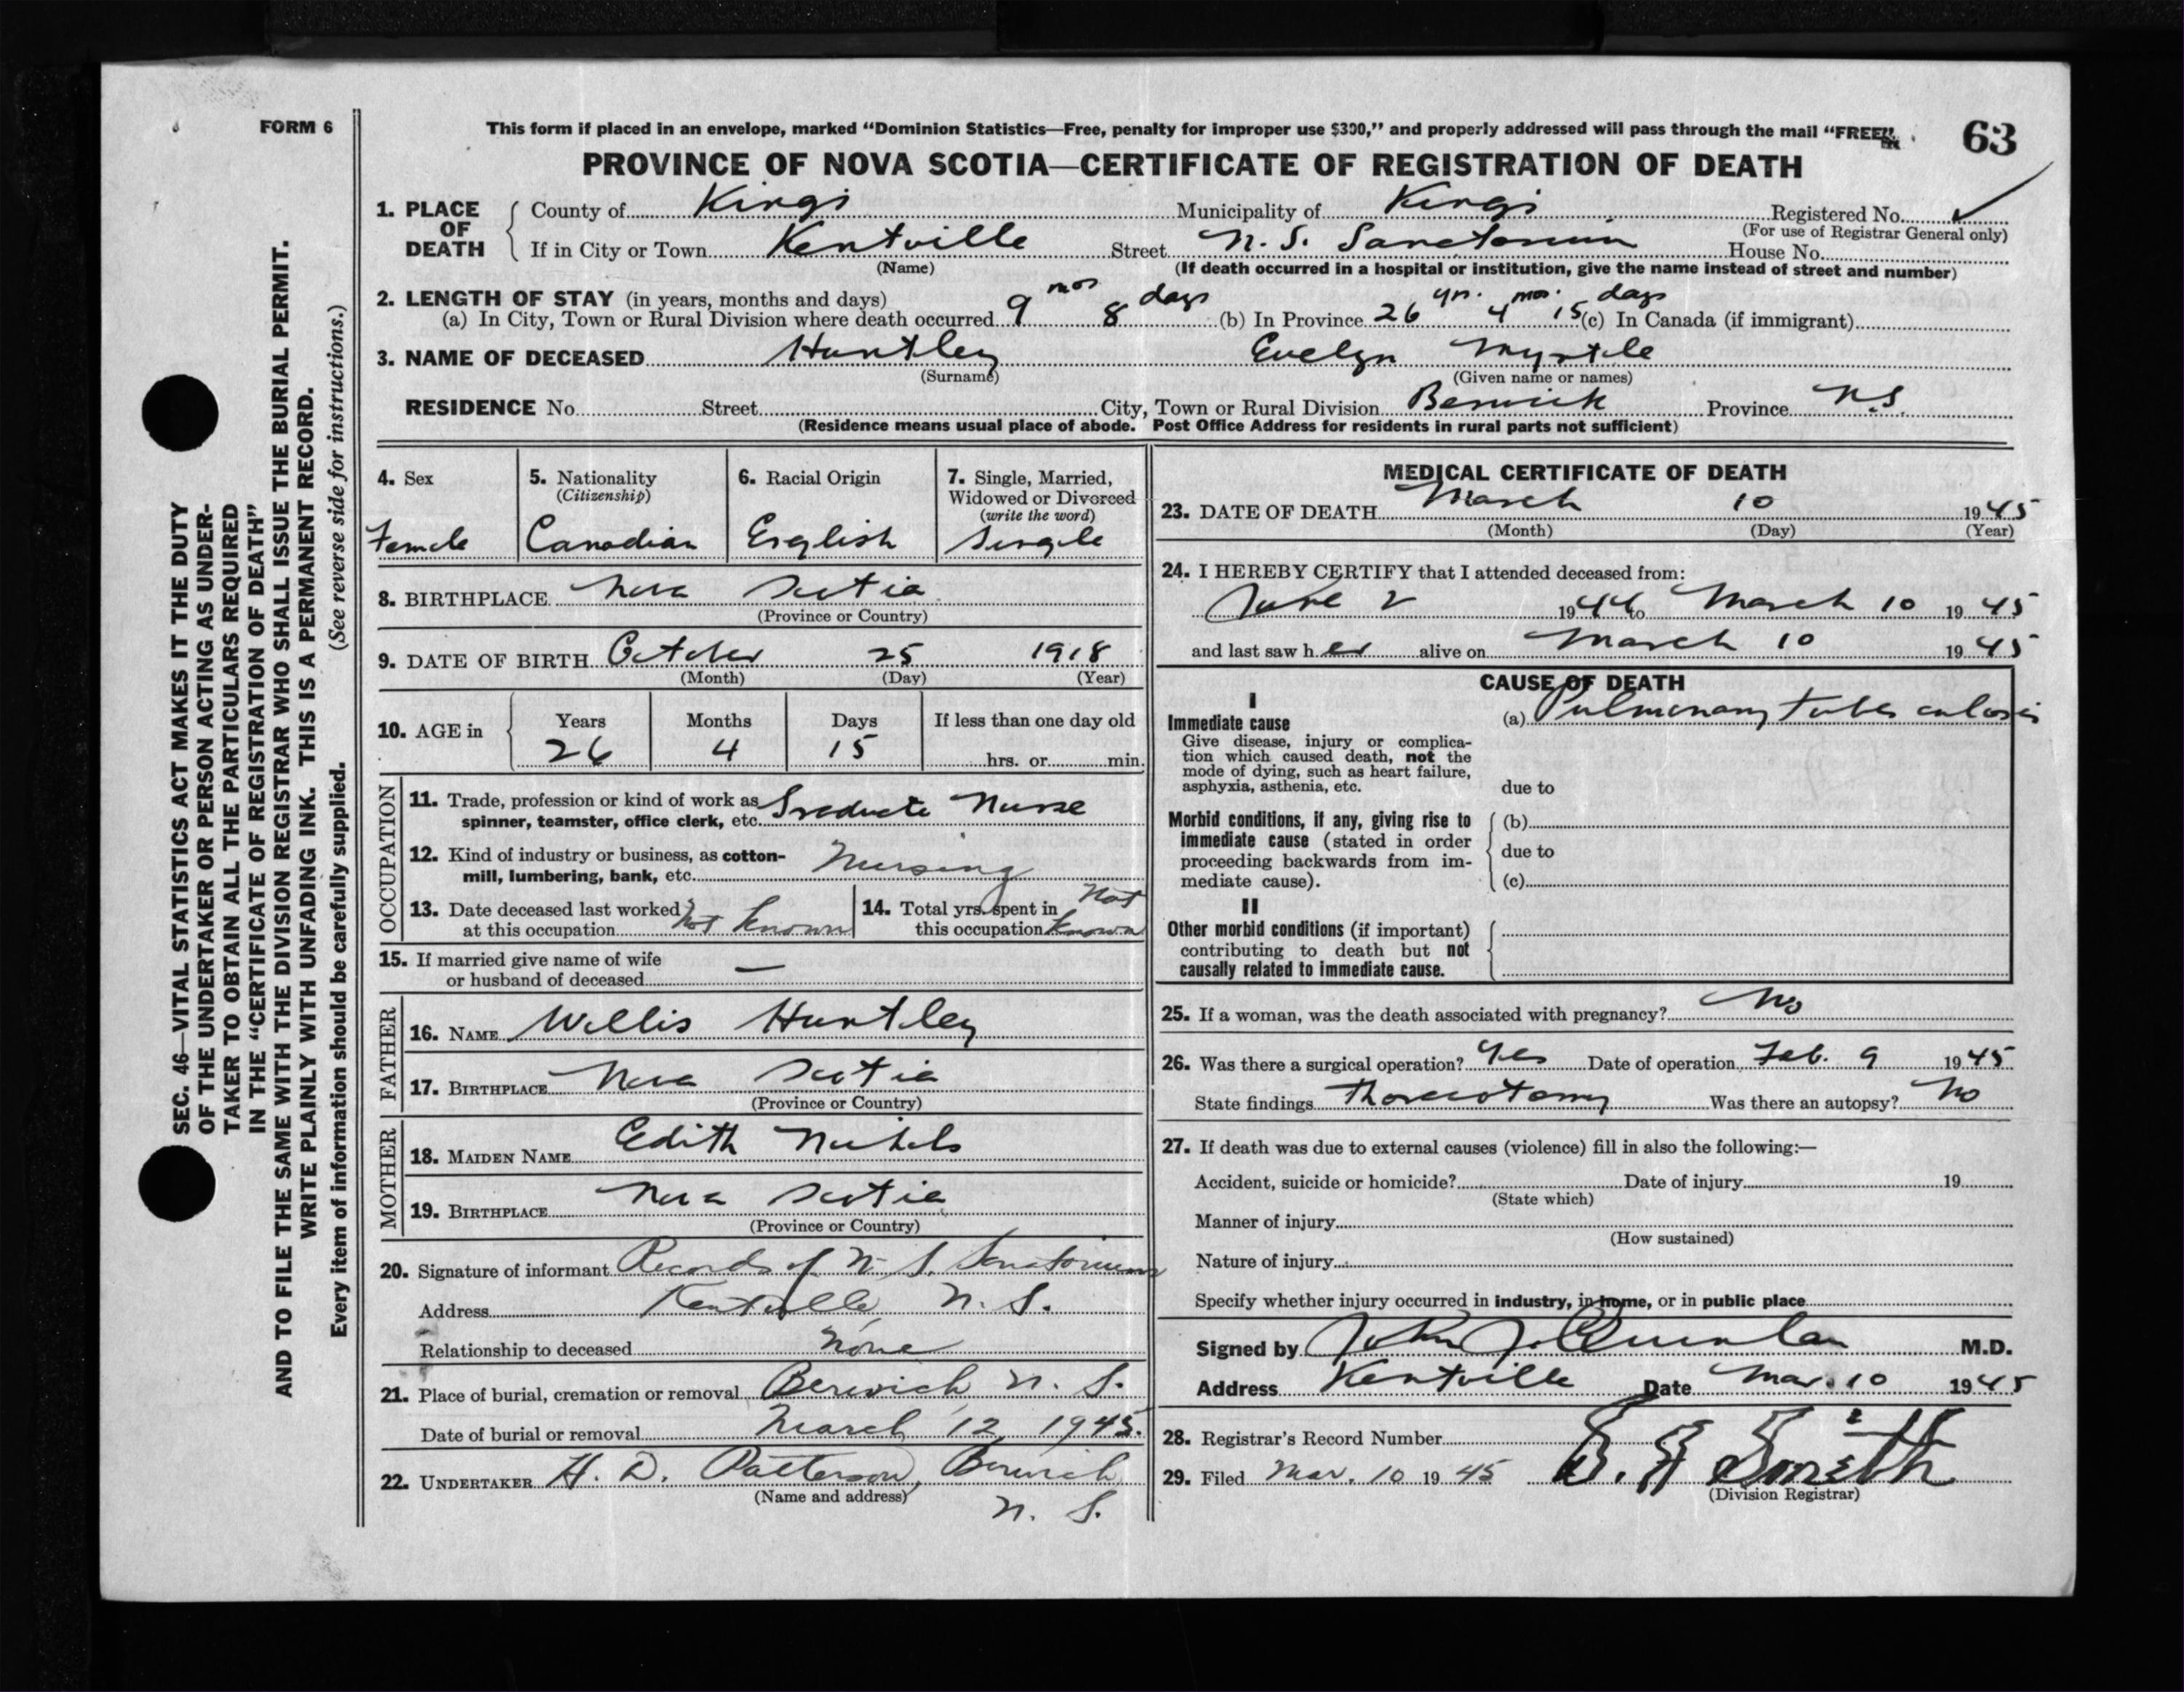 FORM 6
This form if placed in an envelope, marked "Dominion Statistics—Free, penalty for improper use $300," and properly addressed will pass through the mail "FREE".
63
PROVINCE OF NOVA SCOTIA—CERTIFICATE OF REGISTRATION OF DEATH
SEC. 46—VITAL STATISTICS ACT MAKES IT THE DUTY
OF THE UNDERTAKER OR PERSON ACTING AS UNDER-
TAKER TO OBTAIN ALL THE PARTICULARS REQUIRED
IN THE "CERTIFICATE OF REGISTRATION OF DEATH"
AND TO FILE THE SAME WITH THE DIVISION REGISTRAR WHO SHALL ISSUE THE BURIAL PERMIT.
WRITE PLAINLY WITH UNFADING INK. THIS IS A PERMANENT RECORD.
Every item of information should be carefully supplied. (See reverse side for instructions.)
1. PLACE OF DEATH
County of Kings Municipality of Kings Registered No. ✓
(For use of Registrar General only)
If in City or Town Kentville Street N. S. Sanatorium House No.
(Name) (If death occurred in a hospital or institution, give the name instead of street and number)
2. LENGTH OF STAY (in years, months and days)
(a) In City, Town or Rural Division where death occurred 9 mos 8 days (b) In Province 26 yrs. 4 mos. 15 days (c) In Canada (if immigrant)
3. NAME OF DECEASED Huntley Evelyn Myrtle
(Surname) (Given name or names)
RESIDENCE No. Street City, Town or Rural Division Berwick Province N.S.
(Residence means usual place of abode. Post Office Address for residents in rural parts not sufficient)
4. Sex Female
5. Nationality (Citizenship) Canadian
6. Racial Origin English
7. Single, Married, Widowed or Divorced (write the word) Single
8. BIRTHPLACE Nova Scotia
(Province or Country)
9. DATE OF BIRTH October 25 1918
(Month) (Day) (Year)
10. AGE in Years Months Days If less than one day old
26 4 15 hrs. or min.
OCCUPATION
11. Trade, profession or kind of work as
spinner, teamster, office clerk, etc. Graduate Nurse
12. Kind of industry or business, as cotton-
mill, lumbering, bank, etc. Nursing
13. Date deceased last worked
at this occupation Not known
14. Total yrs. spent in
this occupation Not known
15. If married give name of wife
or husband of deceased —
FATHER
16. NAME Willis Huntley
17. BIRTHPLACE Nova Scotia
(Province or Country)
MOTHER
18. MAIDEN NAME Edith Nichols
19. BIRTHPLACE Nova Scotia
(Province or Country)
20. Signature of informant Records of N. S. Sanatorium
Address Kentville N. S.
Relationship to deceased None
21. Place of burial, cremation or removal Berwick N. S.
Date of burial or removal March 12, 1945.
22. UNDERTAKER H. D. Patterson, Berwick
(Name and address) N. S.
MEDICAL CERTIFICATE OF DEATH
23. DATE OF DEATH March 10 1945
(Month) (Day) (Year)
24. I HEREBY CERTIFY that I attended deceased from:
June 2 1944 to March 10 1945
and last saw her alive on March 10 1945
CAUSE OF DEATH
I
Immediate cause (a) Pulmonary tuberculosis
Give disease, injury or complica-
tion which caused death, not the
mode of dying, such as heart failure,
asphyxia, asthenia, etc. due to
Morbid conditions, if any, giving rise to (b)
immediate cause (stated in order
proceeding backwards from im- due to
mediate cause). (c)
II
Other morbid conditions (if important)
contributing to death but not
causally related to immediate cause.
25. If a woman, was the death associated with pregnancy? No
26. Was there a surgical operation? Yes Date of operation Feb. 9 1945
State findings Thoracotomy Was there an autopsy? No
27. If death was due to external causes (violence) fill in also the following:—
Accident, suicide or homicide? Date of injury 19
(State which)
Manner of injury
(How sustained)
Nature of injury
Specify whether injury occurred in industry, in home, or in public place
Signed by John J. Quinlan M.D.
Address Kentville Date Mar. 10 1945
28. Registrar's Record Number
29. Filed Mar. 10 1945 Smith
(Division Registrar)